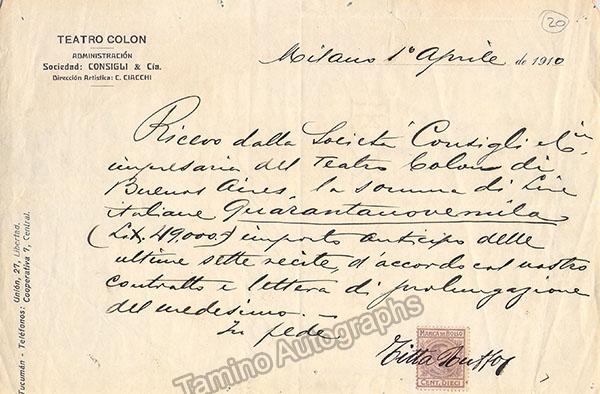 20
TEATRO COLON
ADMINISTRACIÓN
Sociedad: CONSIGLI & Cía.
Dirección Artística: C. CIACCHI
Milano 1º Aprile de 1910
Ricevo dalla Società Consigli e Cia
impresaria del Teatro Colon di
Buenos Aires, la somma di Lire
italiane Quarantanovemila
(Lit. 49,000.) importo anticipo delle
ultime sette recite, d'accordo col nostro
contratto e lettera di prolungazione
del medesimo. —
In fede
Titta Ruffo
MARCA DA BOLLO
CENT. DIECI
Tucumán - Teléfonos: Unión, 27, Libertad.
Cooperativa 7, Central.
Tamino Autographs